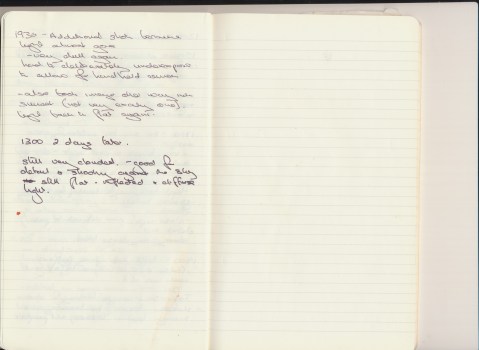 1930 - Additional shots because
light almost gone
- very dull again
had to deliberately underexpose
to allow for handheld camera
- also took image also very
sunset (not very
light back to flat again.
1300 2 days later.
still very clouded. - good for
detail + shooting against the sky
still flat - reflected + diffuse
light.